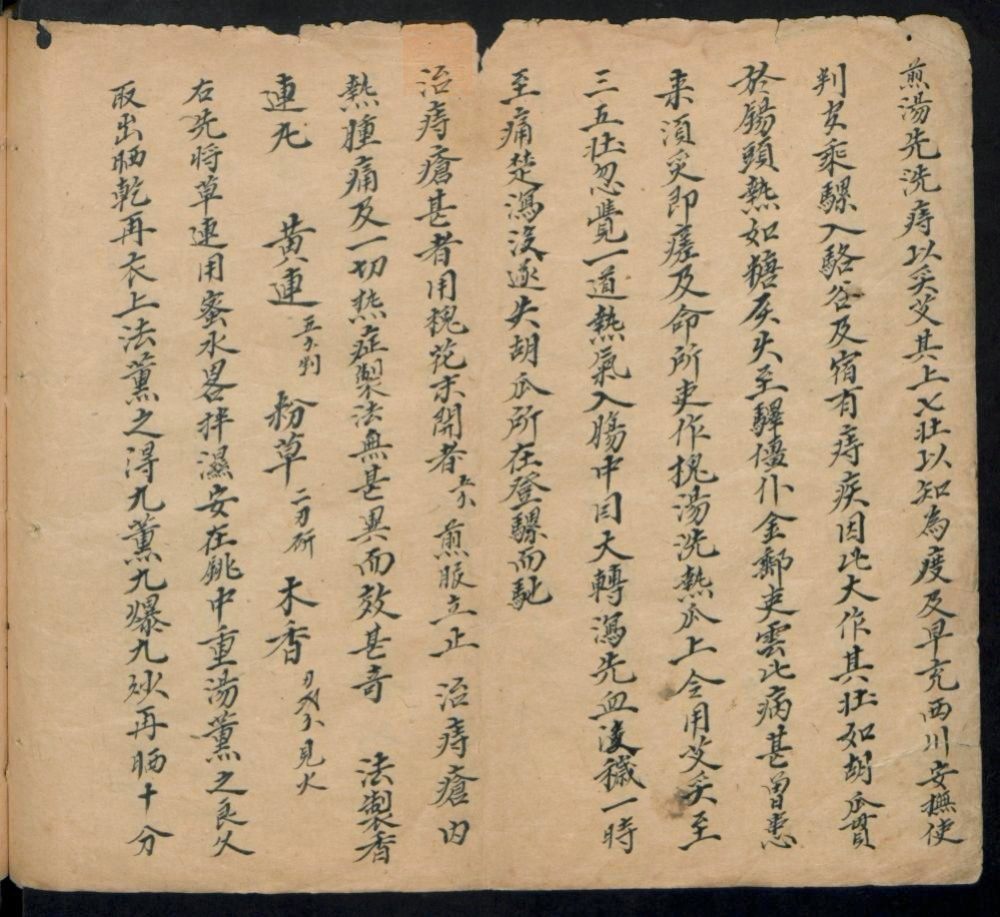 煎湯先洗痔以灸艾其上七壮以知為度及早充西川安撫使
判官乘騾入駱谷及宿有痔疾因此大作其壮如胡瓜貫
於腸頭熱如糖灰火至驛僵仆金郵吏雲此病甚曽患
来須灸即瘥及命所吏作槐湯洗熱瓜上令用艾灸至
三五壮忽覺一道熱氣入腸中因大轉瀉先血後穢一時
至痛楚瀉後遂失胡瓜所在登騾而馳
治痔瘡甚者用槐花未開者 煎服立止 治痔瘡内
熱腫痛及一切热症製法無甚異而效甚奇 法製香
連丸 黄連 粉草 木香 見火
右先将草連用蜜水畧拌濕安在銚中重湯薰之良久
取出晒乾再衣上法薰之得九薰九爆九炒再晒十分